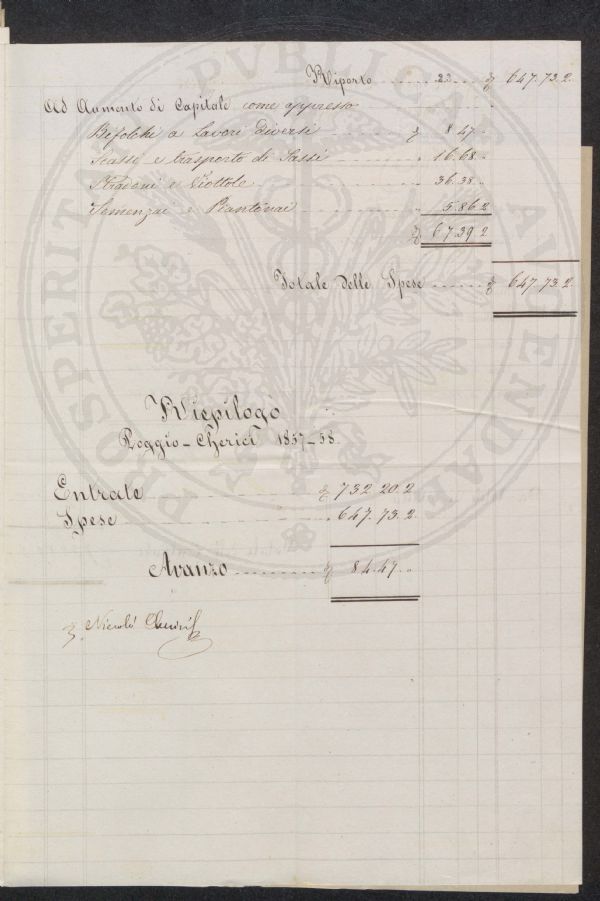 Riporto ...... 23 ... £ 647.73.2
Ad Aumento di Capitale come appresso
Bifolchi a Lavori Diversi ...... £ 8.47.
Scassi e trasporto di Sassi ...... 16.68.
Stradoni e Viottole ...... 36.38.
Semenzai e Piantonai ...... 5.86.2
£ 67.39.2
Totale delle Spese ...... £ 647.73.2
Riepilogo
Poggio-Cherici 1857-58
Entrate ...... £ 732.20.2
Spese ...... 647.73.2
Avanzo ...... £ 84.47..
Nicolò
PROSPERITATI PUBLICAE AUGENDAE